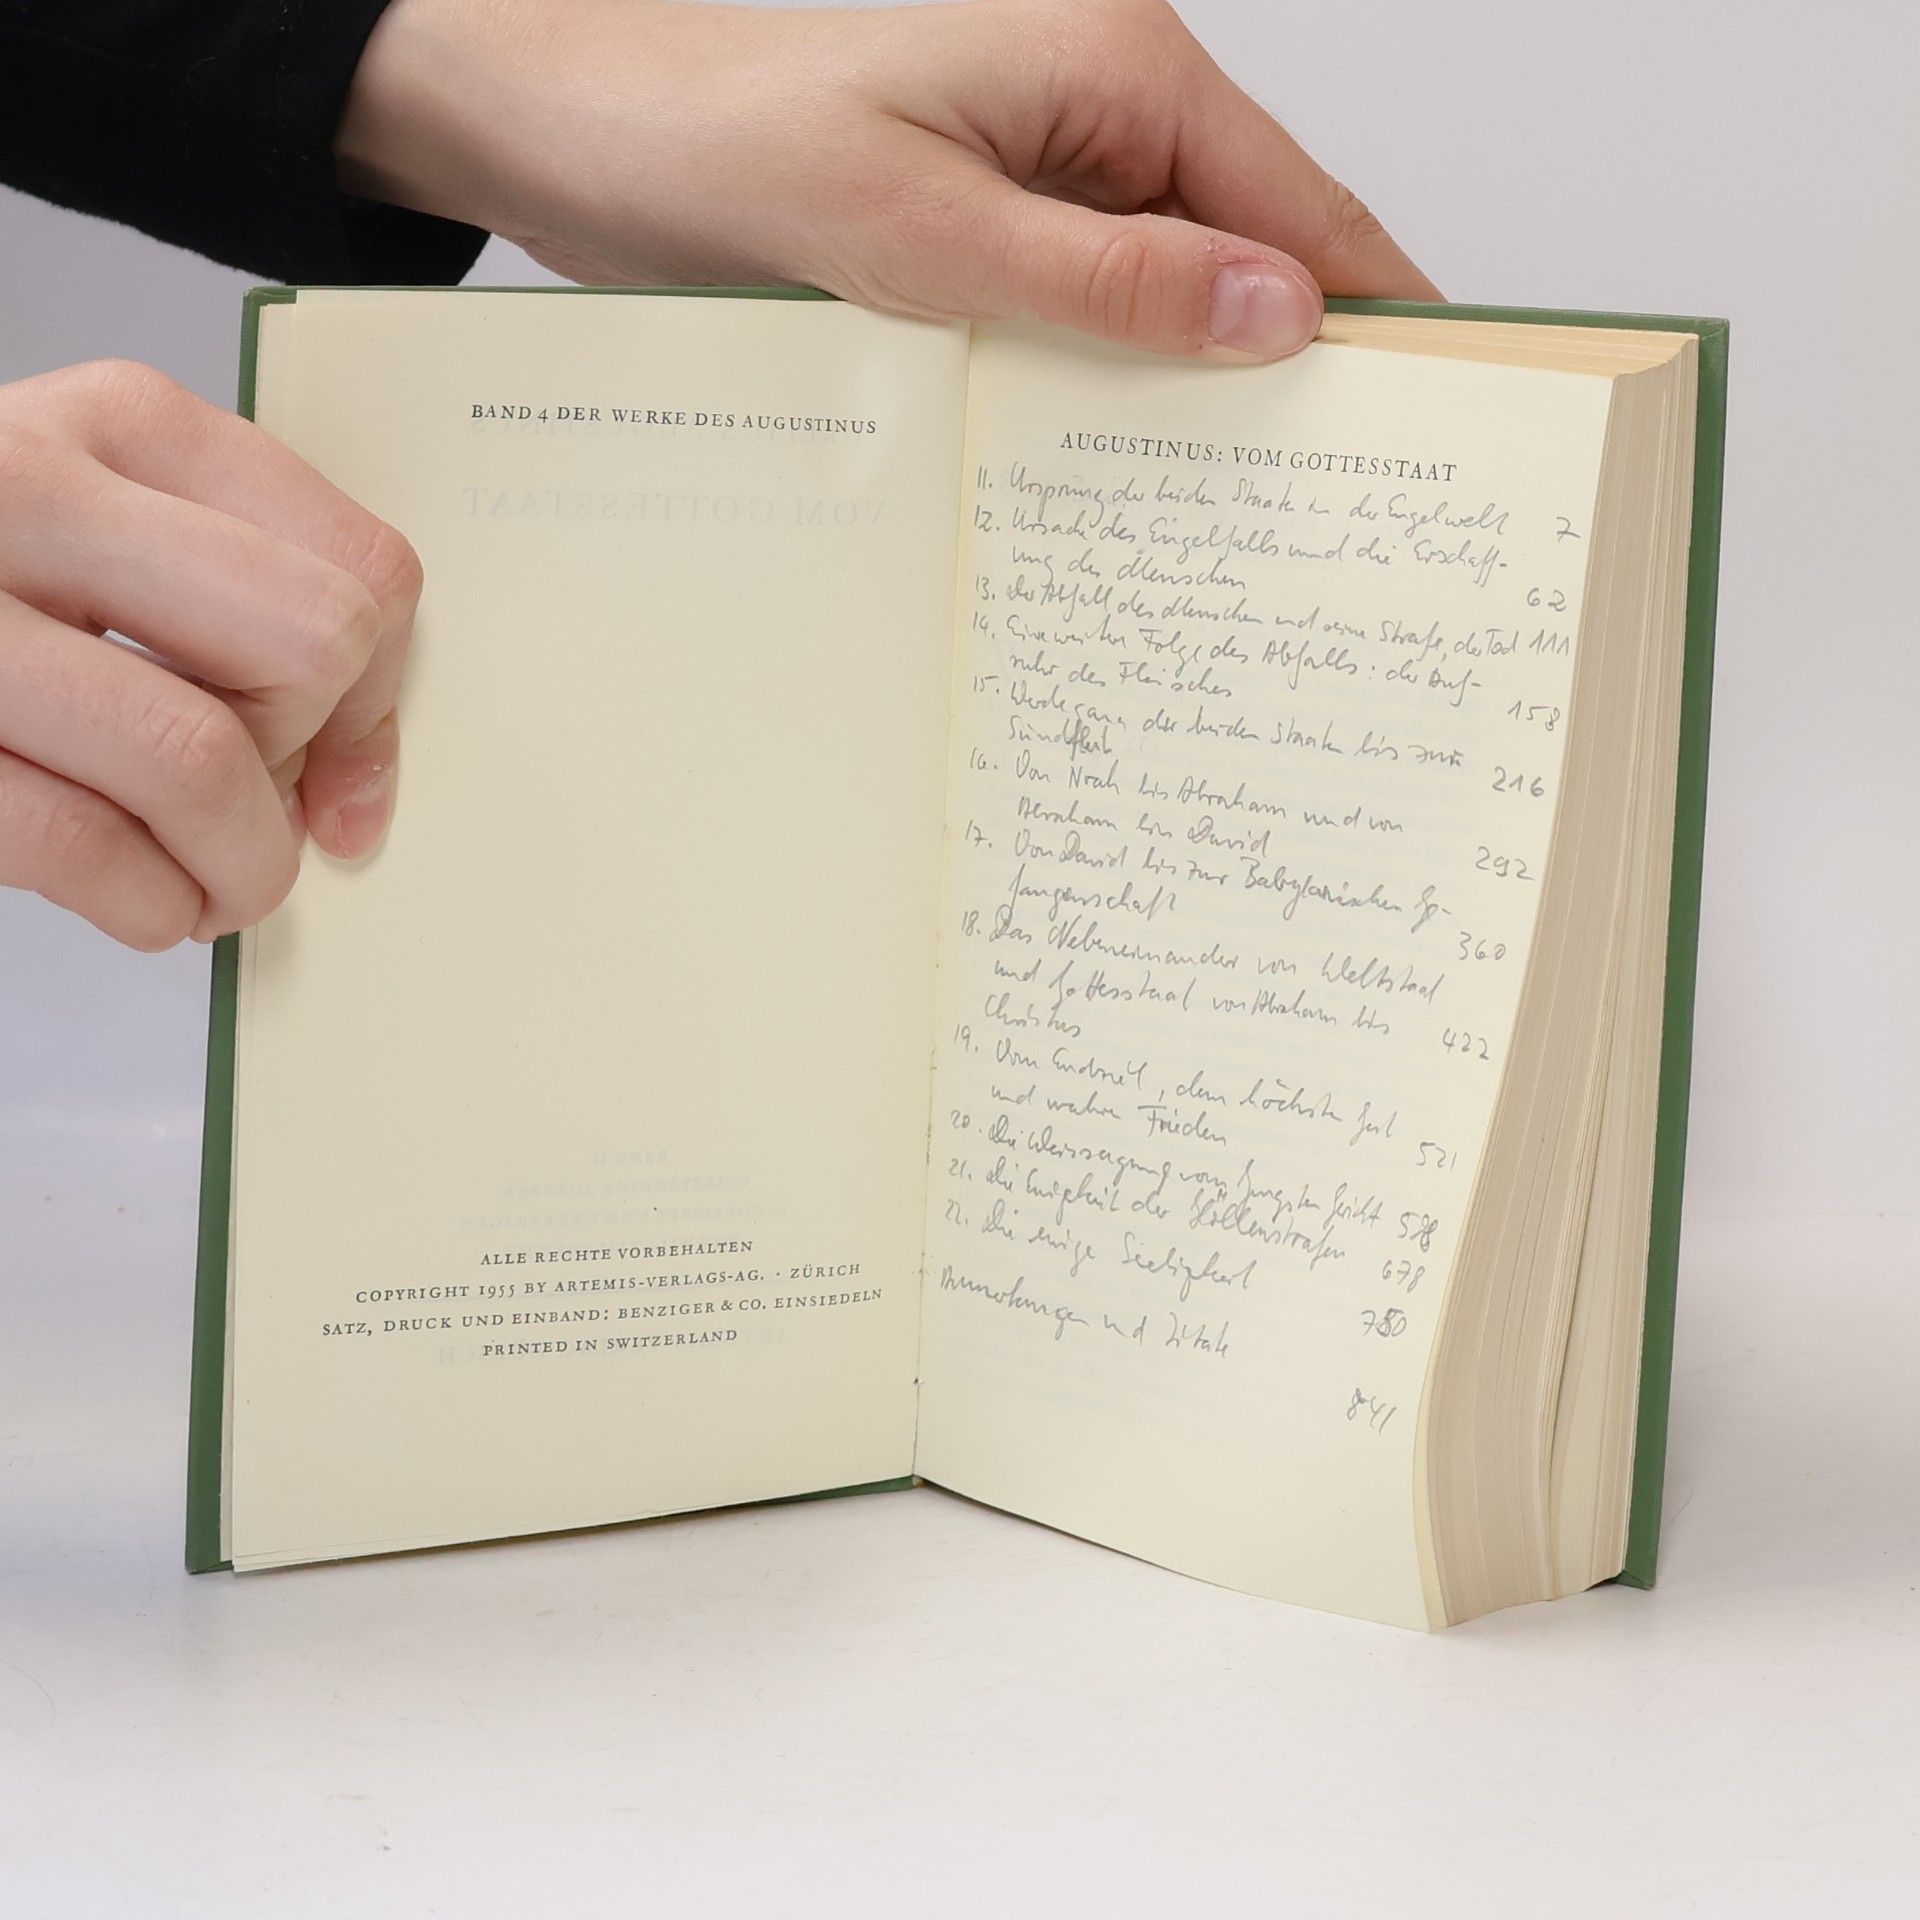 BAND 4 DER WERKE DES AUGUSTINUS
ALLE RECHTE VORBEHALTEN
COPYRIGHT 1955 BY ARTEMIS-VERLAGS-AG. · ZÜRICH
SATZ, DRUCK UND EINBAND: BENZIGER & CO. EINSIEDELN
PRINTED IN SWITZERLAND
AUGUSTINUS: VOM GOTTESSTAAT
11. Ursprung der beiden Staaten in der Engelwelt 7
12. Ursache des Engelfalls und die Erschaff-
ung des Menschen 62
13. Der Abfall des Menschen und seine Strafe, der Tod 111
14. Eine weitere Folge des Abfalls: der Auf-
ruhr des Fleisches 158
15. Werdegang der beiden Staaten bis zur
Sündflut 216
16. Von Noah bis Abraham und von
Abraham bis David 292
17. Von David bis zur Babylonischen Ge-
fangenschaft 360
18. Das Nebeneinander von Weltstaat
und Gottesstaat von Abraham bis
Christus 422
19. Vom Endziel, dem höchsten Gut
und wahren Frieden 521
20. Die Weissagung vom Jüngsten Gericht
21. Die Ewigkeit der Höllenstrafen 678
22. Die ewige Seeligkeit 750
Anmerkungen und Zitate 841